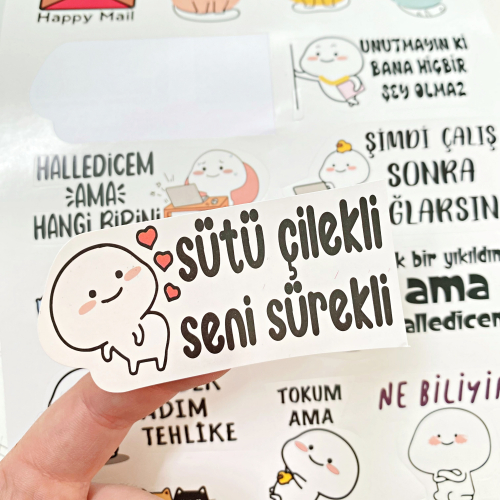 Happy Mail
UNUTMAYIN Kİ
BANA HİÇBİR
ŞEY OLMAZ
HALLEDİCEM
AMA
HANGİ BİRİNİ
ŞİMDİ ÇALIŞ
SONRA
ĞLARSIN
sütü çilekli
seni sürekli
k bir yıkıldım
ama
alledicem
ADIM
TEHLİKE
TOKUM
AMA
NE BİLİYİM